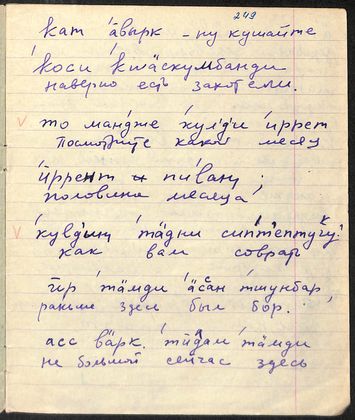 249
кат а́вырк – ну кушайте
́коси ́кшӓскумбанди
наверно есть захотели.
то мандже ́кул'д'и ́иррет
посмотрите какой месяц
́иррент пи́ва̄ну,
половина месяца
́кувдың тӓдни сип'т'ептугу?
как вам соврать
тӣр тӓмди ӓсӓн тшунбар,
раньше здесь был бор.
асс вӓрк. тӓдам тӓмди
не большой сейчас здесь